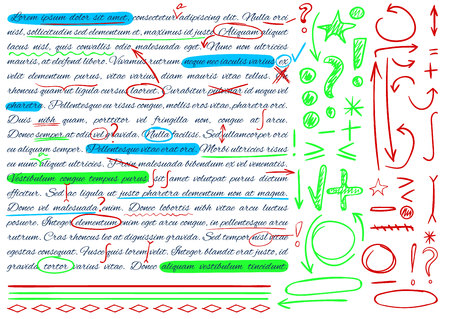 Lorem ipsum dolor sit amet, consectetur adipiscing elit. Nulla orci
nisl, sollicitudin sed elementum et, maximus id justo. Aliquam aliquet
lacus nisl, quis convallis odio malesuada eget. Nunc non ultricies
mauris, at eleifend libero. Vivamus rutrum neque nec iaculis varius ex
velit elementum purus, vitae varius diam mauris vitae tellus.
rhoncus quam ut ligula cursus laoreet. Curabitur pulvinar id neque vel
pharetra. Pellentesque eu risus congue, mollis eros vitae, pharetra orci.
Duis nibh quam, porttitor vel fringilla non, at arcu.
Donec semper at odio vel gravida. Nulla facilisi. Sed ullamcorper orci
eu aliquam semper. Pellentesque vitae erat orci. Morbi ultricies risus
eu nunc aliquet ultricies. Proin malesuada bibendum ex vel venenatis.
Vestibulum congue tempus purus, sit amet volutpat purus dictum
efficitur. Sed ac ligula ut justo pharetra elementum non at magna.
Donec vel malesuada enim. Donec lobortis nibh vitae arcu luctus
posuere. Integer elementum nunc eget arcu congue, in pellentesque arcu
rutrum. Cras rhoncus leo at dignissim gravida. Sed tempor nisl vitae
egestas consequat. Fusce quis lorem velit. Integer blandit erat justo, id
gravida tortor varius vitae. Donec aliquam vestibulum tincidunt